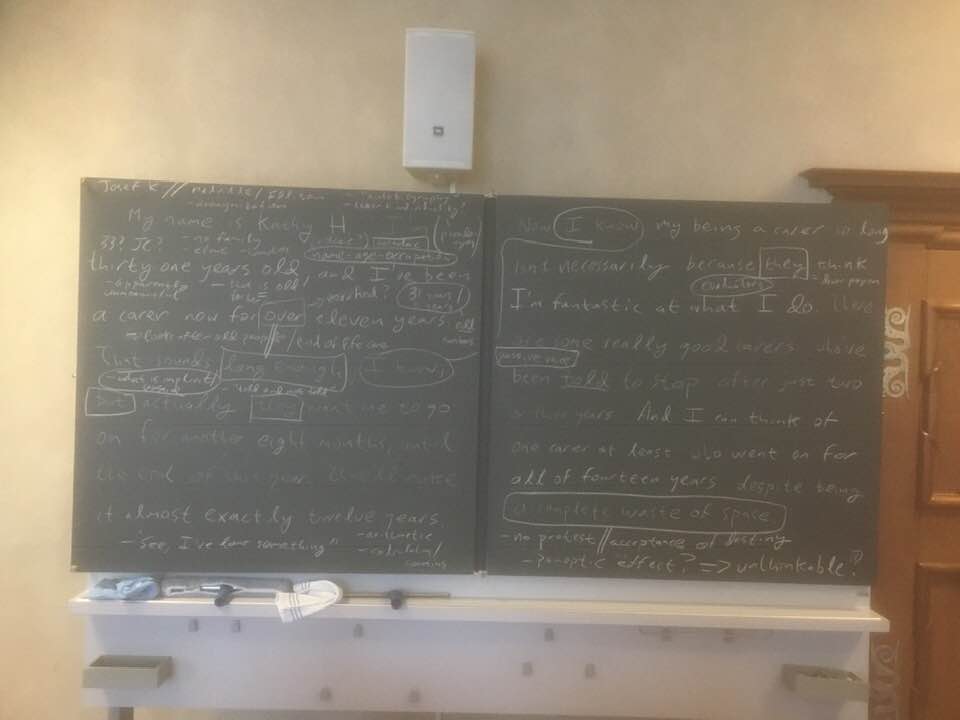 Josef K //
My name is Kathy H I am
33? JC? - no family name-age-occupation
thirty one years old, and I've been
a carer now for over eleven years.
- looks after old people / end of life care
That sounds long enough, I know,
- what is implicit
but actually they want me to go
on for another eight months, until
the end of this year. That'll make
it almost exactly twelve years.
- "See, I've done something" - arithmetic
Now I know my being a carer so long
isn't necessarily because they think
evaluators
I'm fantastic at what I do. There
are some really good carers who've
passive voice
been told to stop after just two
or three years. And I can think of
one carer at least who went on for
all of fourteen years despite being
a complete waste of space
- no protest // acceptance of destiny
- Panoptic effect? => unthinkable?